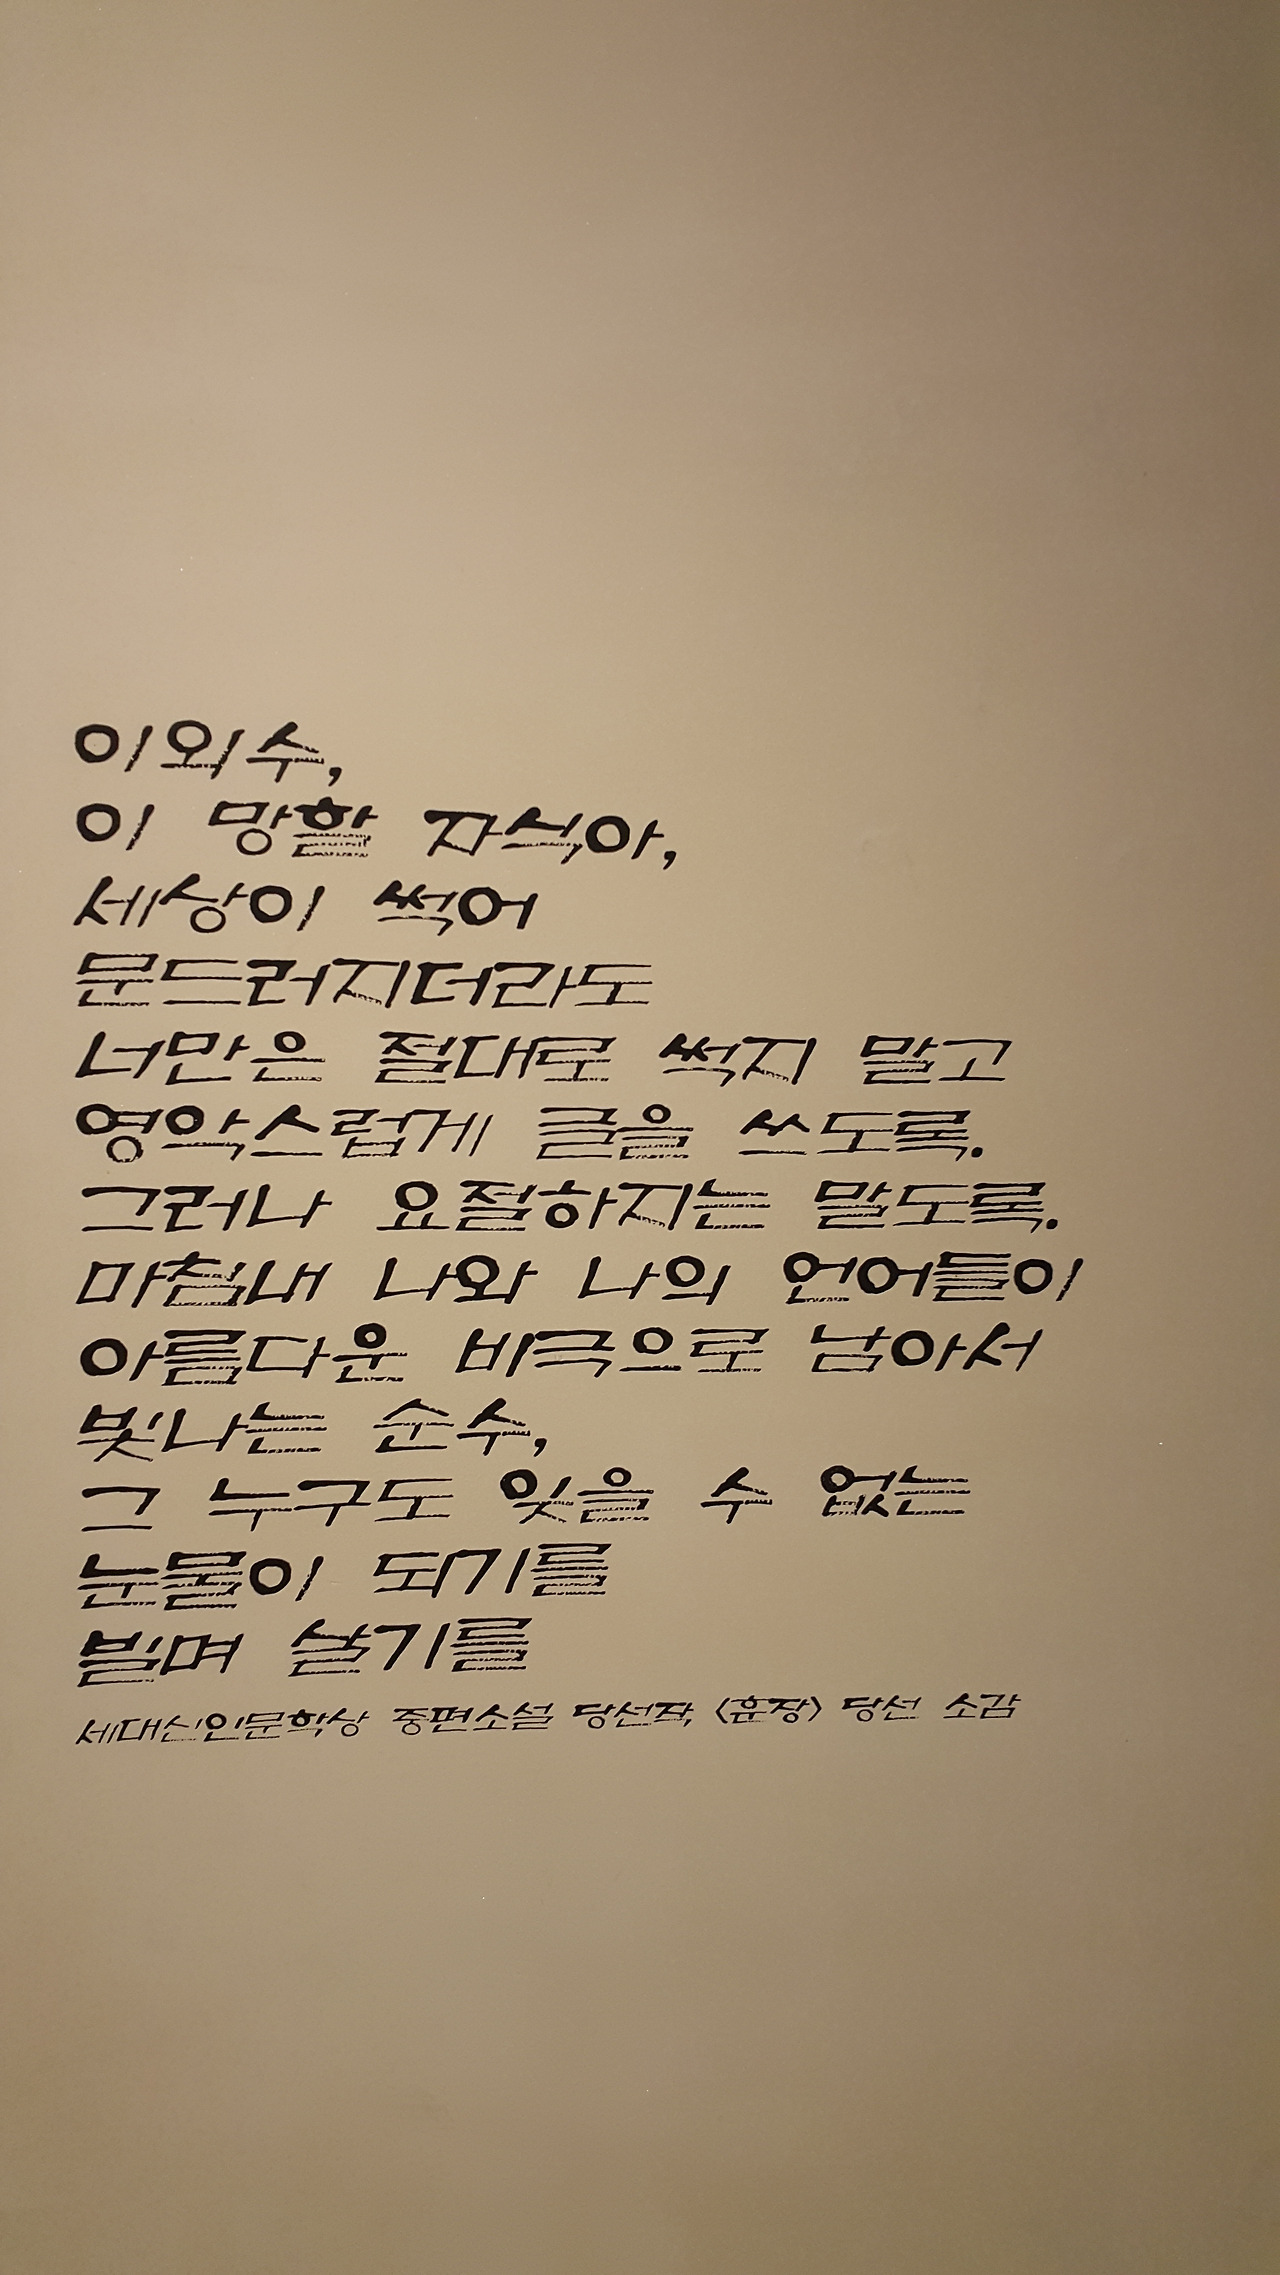 이외수,
이 망할 자식아,
세상이 썩어
문드러지더라도
너만은 절대로 썩지 말고
영악스럽게 글을 쓰도록.
그러나 요절하지는 말도록.
마침내 나와 나의 언어들이
아름다운 비극으로 남아서
빛나는 순수,
그 누구도 잊을 수 없는
눈물이 되기를
빌며 살기를
세대신인문학상 중편소설 당선작 〈훈장〉 당선 소감